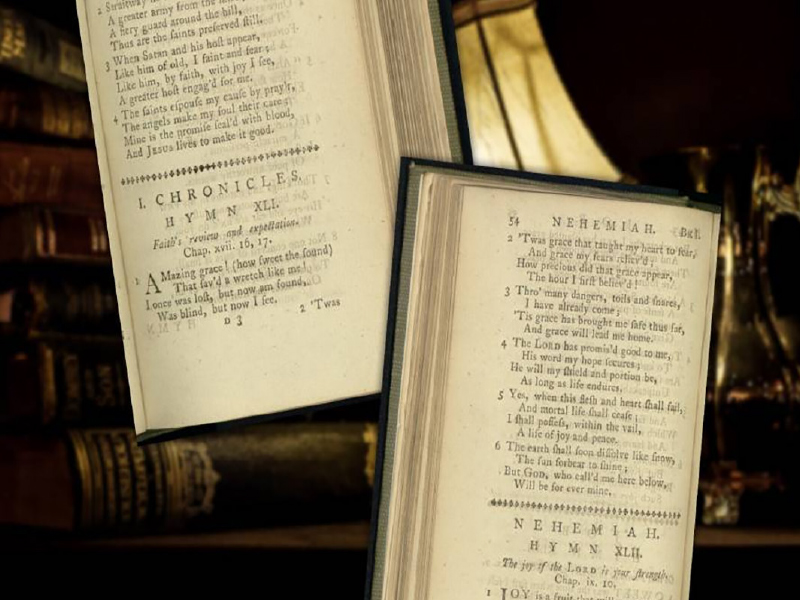 2 Straitway
A greater army from the hill,
A fiery guard around the hill,
Thus are the saints preserved still.
3 When Satan and his host appear,
Like him of old, I faint and fear;
Like him, by faith, with joy I see,
A greater host engag'd for me.
4 The saints espouse my cause by pray'r,
The angels make my soul their care;
Mine is the promise seal'd with blood,
And JESUS lives to make it good.
I. CHRONICLES.
HYMN XLI.
Faith's review and expectation.
Chap. xvii. 16, 17.
1 AMazing grace! (how sweet the sound)
That sav'd a wretch like me!
I once was lost, but now am found,
Was blind, but now I see.
D 3 2 'Twas
54 NEHEMIAH. Bk I.
2 'Twas grace that taught my heart to fear,
And grace my fears reliev'd;
How precious did that grace appear,
The hour I first believ'd!
3 Thro' many dangers, toils and snares,
I have already come;
'Tis grace has brought me safe thus far,
And grace will lead me home.
4 The LORD has promis'd good to me,
His word my hope secures;
He will my shield and portion be,
As long as life endures.
5 Yes, when this flesh and heart shall fail,
And mortal life shall cease;
I shall possess, within the vail,
A life of joy and peace.
6 The earth shall soon dissolve like snow,
The sun forbear to shine;
But GOD, who call'd me here below,
Will be for ever mine.
NEHEMIAH.
HYMN XLII.
The joy of the LORD is your strength.
Chap. ix. 10.
1 JOY is a fruit that will